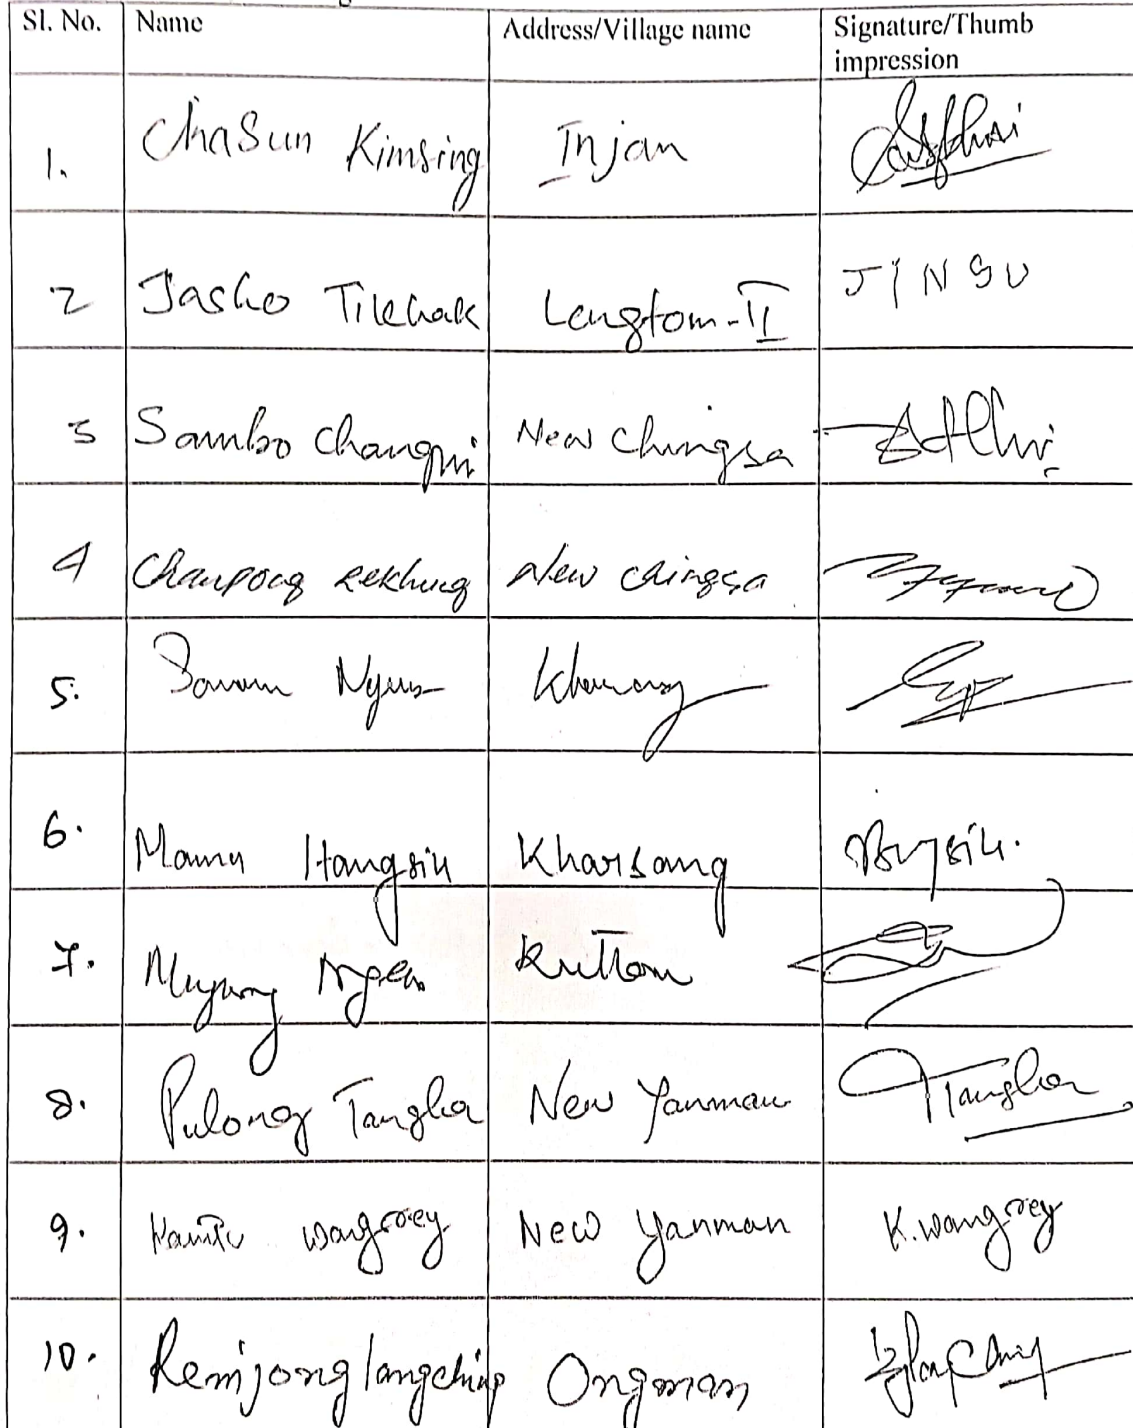 Sl. No. Name Address/Village name Signature/Thumb impression
1. ChaSun Kimsing Injan
2 Jasho Tikhak Longtom-II JINSU
3 Sambo Changmi New Chingsa
4 Chanpong Rekhung New Chingsa
5. Khamang
6. Mannu Hangsik Kharsang
7. Muyung Ngem Kuttom
8. Pulong Tangha New Yanman Tangha
9. Kamtu Wangrey New Yanman K.Wangrey
10. Renijong langching Ongman